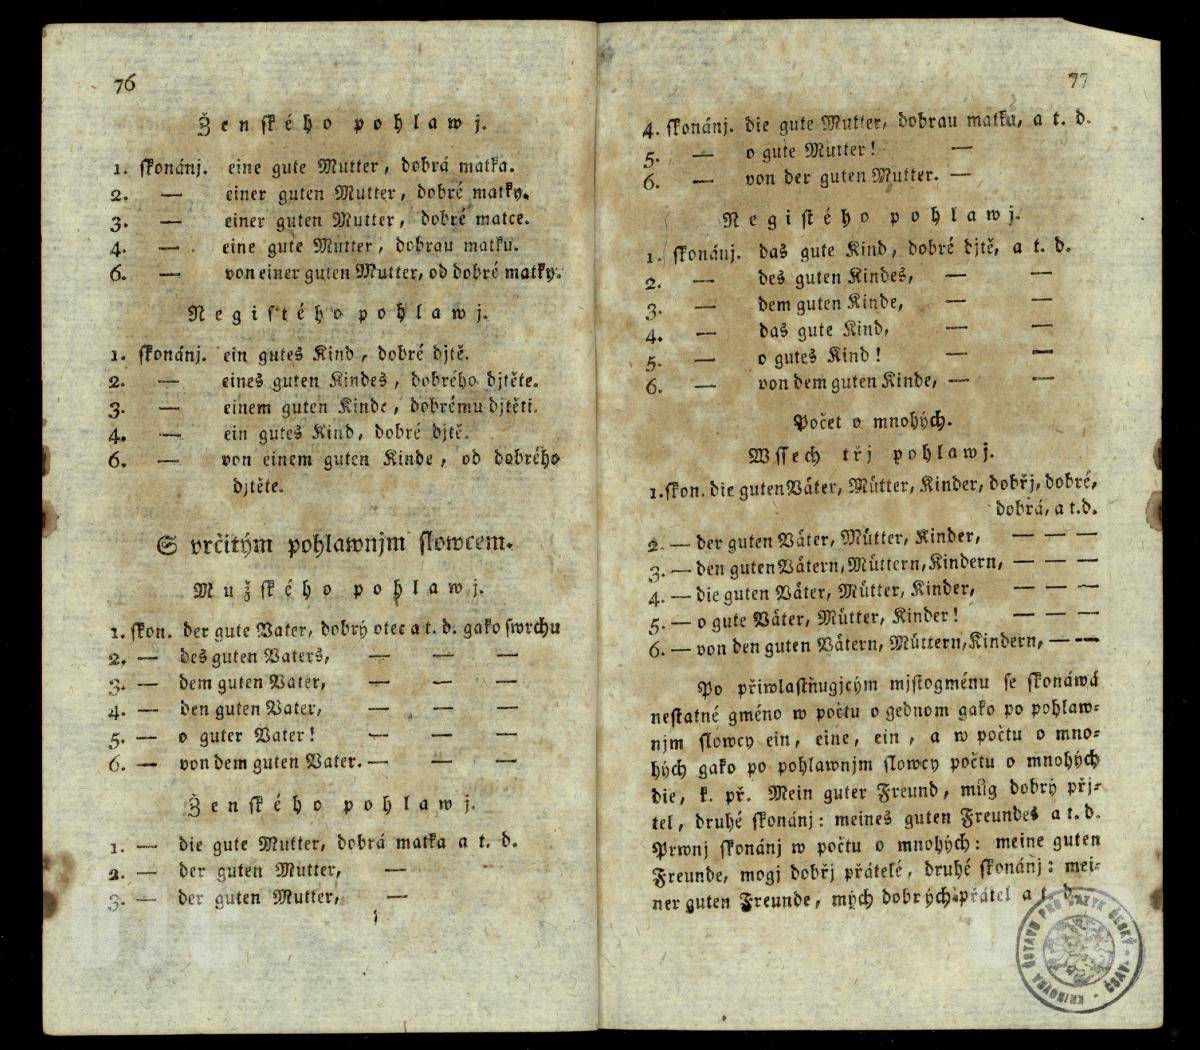 76
Ženſkého pohlawj.
1. ſkonánj. eine gute Mutter, dobrá matka.
2. — einer guten Mutter, dobré matky.
3. — einer guten Mutter, dobré matce.
4. — eine gute Mutter, dobrau matku.
6. — von einer guten Mutter, od dobré matky.
Negiſtého pohlawj.
1. ſkonánj. ein gutes Kind, dobré djtě.
2. — eines guten Kindes, dobrého djtěte.
3. — einem guten Kinde, dobrému djtěti.
4. — ein gutes Kind, dobré djtě.
6. — von einem guten Kinde, od dobrého
djtěte.
S vrčitým pohlawnjm ſlowcem.
Mužſkého pohlawj.
1. ſkon. der gute Vater, dobrý otec a t. d. gako ſwrchu
2. — des guten Vaters, — — —
3. — dem guten Vater, — — —
4. — den guten Vater, — — —
5. — o guter Vater! — — —
6. — von dem guten Vater. — — —
Ženſkého pohlawj.
1. — die gute Mutter, dobrá matka a t. d.
2. — der guten Mutter, —
3. — der guten Mutter, —
77
4. ſkonánj. die gute Mutter, dobrau matku, a t. d.
5. — o gute Mutter! —
6. — von der guten Mutter. —
Negiſtého pohlawj.
1. ſkonánj. das gute Kind, dobré djtě, a t. d.
2. — des guten Kindes, — —
3. — dem guten Kinde, — —
4. — das gute Kind, — —
5. — o gutes Kind! — —
6. — von dem guten Kinde, — —
Počet o mnohých.
Wſſech třj pohlawj.
1. ſkon. die guten Väter, Mütter, Kinder, dobřj, dobré,
dobrá, a t. d.
2. — der guten Väter, Mütter, Kinder, — — —
3. — den guten Vätern, Müttern, Kindern, — — —
4. — die guten Väter, Mütter, Kinder, — — —
5. — o gute Väter, Mütter, Kinder! — — —
6. — von den guten Vätern, Müttern, Kindern, — —
Po přiwlaſtňugjcým mjſtogménu ſe ſkonáwá
neſtatné gméno w počtu o gednom gako po pohlaw⸗
njm ſlowcy ein, eine, ein, a w počtu o mno⸗
hých gako po pohlawnjm ſlowcy počtu o mnohých
die, k. př. Mein guter Freund, můg dobrý přj⸗
tel, druhé ſkonánj: meines guten Freundes a t. d.
Prwnj ſkonánj w počtu o mnohých: meine guten
Freunde, mogi dobřj přátelé, druhé ſkonánj: mei⸗
ner guten Freunde, mých dobrých přátel a t. d.
KNIHOVNA ÚSTAVU PRO JAZYK ČESKÝ - ČSAV -